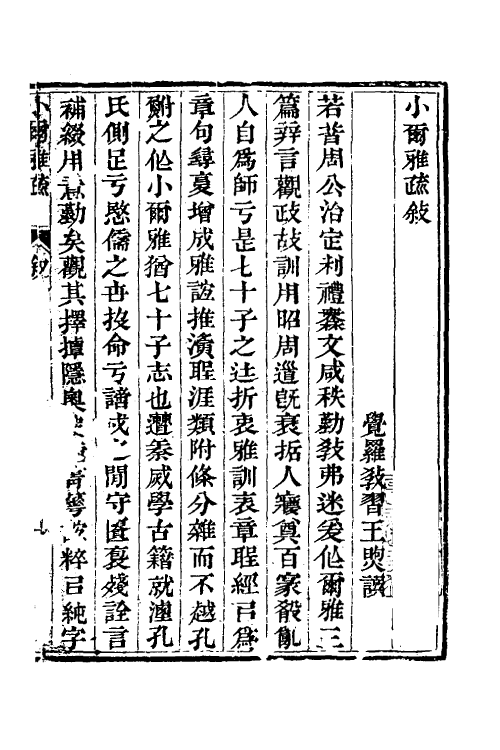 小爾雅疏敍
覺羅敎習王煚譔
若昔周公治定制禮爨文咸秩勤敎弗迷爰作爾雅三
篇辨言觀政故訓用昭周道旣衰拓人襄奠百家殽亂
人自爲師亏是七十子之辻折衷雅訓衷章聖經㠯爲
章句尋夏增成雅誼推演聖涯類附條分雜而不越孔
鮒之作小爾雅猶七十子志也遭秦威學古籍就湮孔
氏側足亏愍儒之世投命亏譜戍之閒守匱裒殘詮言
補綴用意勤矣觀其擇撢隱奧 粹㠯純字
小爾雅疏 敘